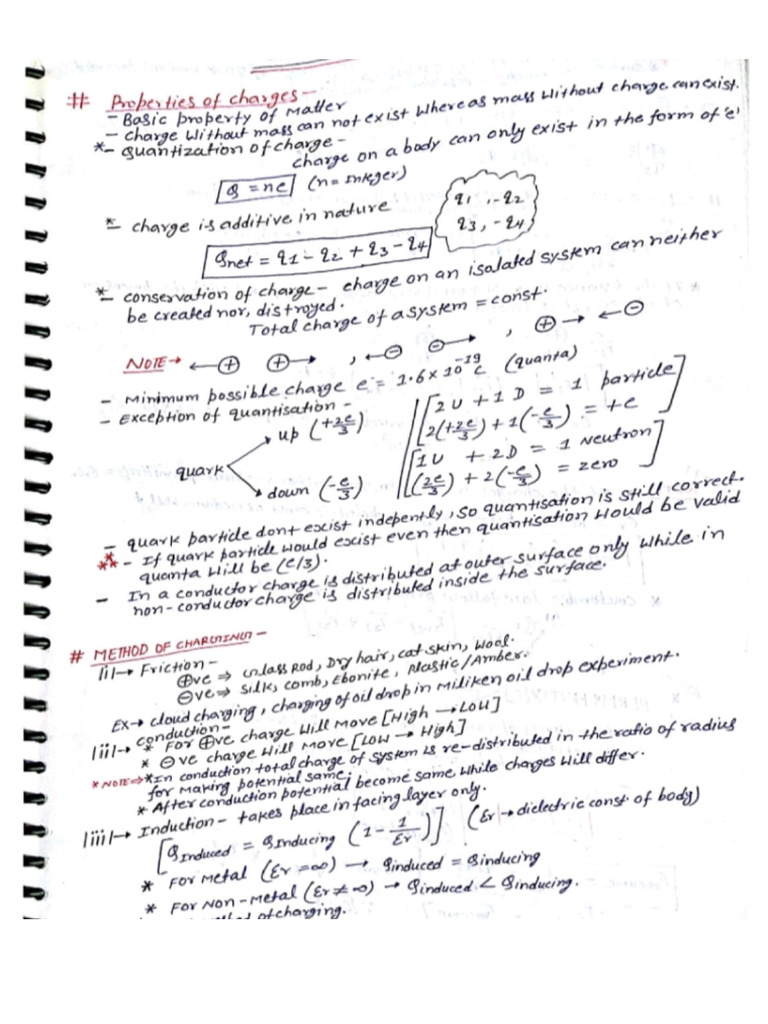 # Properties of charges -
- Basic property of Matter
- charge without mass can not exist whereas mass without charge can exist.
*- Quantization of charge -
charge on a body can only exist in the form of 'e'
Q = ne (n = Integer)
*- charge is additive in nature
q1, -q2
q3, -q4
Qnet = q1 - q2 + q3 - q4
*- conservation of charge - charge on an isolated system can neither
be created nor, distroyed.
Total charge of a system = const.
NOTE → ←⊕ ⊕→ , ←⊖ ⊖→ , ⊕→ ←⊖
- Minimum possible charge e = 1.6 × 10^-19 c (quanta)
- Exception of quantisation -
quark
up (+2e/3)
down (-e/3)
[2U + 1D = 1 particle
2(+2e/3) + 1(-e/3) = +e]
[1U + 2D = 1 neutron
(2e/3) + 2(-e/3) = zero]
- quark particle dont exist indepently, so quantisation is still correct.
** - If quark particle would exist even then quantisation would be valid
quanta will be (e/3).
- In a conductor charge is distributed at outer surface only while in
non-conductor charge is distributed inside the surface.
# METHOD OF CHARGING -
(i) → Friction -
⊕ve ⇒ Glass Rod, Dry hair, cat skin, wool.
⊖ve ⇒ silk, comb, Ebonite, Plastic/Amber.
Ex → cloud charging, charging of oil drop in Miliken oil drop experiment.
(ii) → conduction -
* For ⊕ve charge will move [High → Low]
* ⊖ve charge will move [Low → High]
* NOTE ⇒ * In conduction total charge of system is re-distributed in the ratio of radius
for making potential same.
* After conduction potential become same while charges will differ.
(iii) → Induction - takes place in facing layer only.
[QInduced = QInducing (1 - 1/εr)] (εr → dielectric const of body)
* For metal (εr = ∞) → Qinduced = Qinducing
* For Non-Metal (εr ≠ ∞) → Qinduced < Qinducing.
of charging.